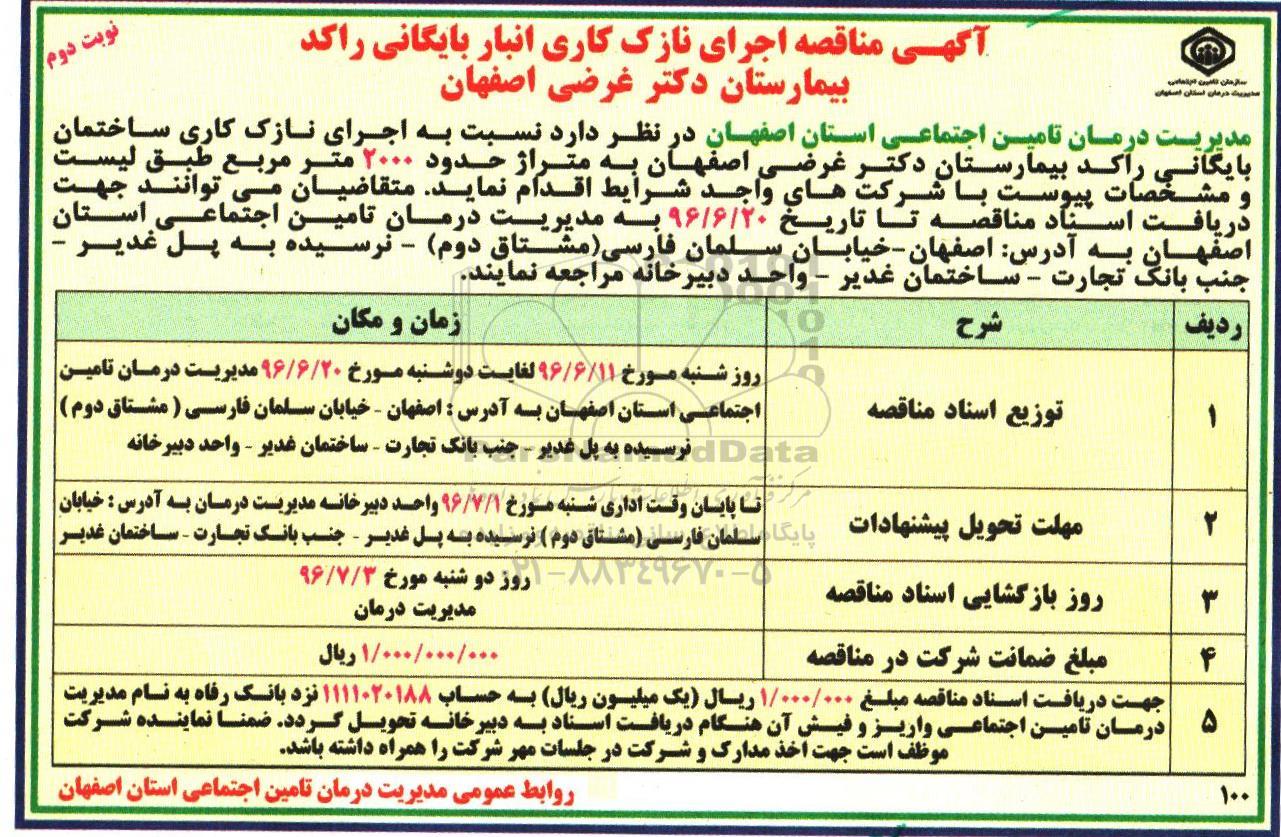 نوبت دوم
آگهـی مناقصه اجرای نازک کاری انبار بایگانی راکد
بیمارستان دکتر غرضی اصفهان
سازمان تامین اجتماعی
مدیریت درمان استان اصفهان
مدیریت درمـان تامیـن اجتماعـی اسـتان اصفهـان در نظـر دارد نسـبت بـه اجـرای نـازک کاری سـاختمان
بایگانـی راکـد بیمارسـتان دکتـر غرضـی اصفهـان بـه متـراژ حـدود ۲۰۰۰ متـر مربـع طبـق لیسـت
و مشـخصات پیوسـت بـا شـرکت هـای واجـد شـرایط اقـدام نمایـد. متقاضیـان مـی تواننـد جهـت
دریافـت اسـناد مناقصـه تـا تاریـخ ۹۶/۶/۲۰ بـه مدیریـت درمـان تامیـن اجتماعـی اسـتان
اصفهـان بـه آدرس: اصفهـان-خیابـان سـلمان فارسـی(مشـتاق دوم) - نرسـیده بـه پـل غدیـر -
جنب بانـک تجـارت - سـاختمان غدیر - واحـد دبیرخانه مراجعه نمایند.
ردیف شرح زمان و مکان
۱ توزیع اسناد مناقصه
روز شـنبه مـورخ ۹۶/۶/۱۱ لغایـت دوشـنبه مـورخ ۹۶/۶/۲۰ مدیریـت درمـان تامین
اجتماعـی اسـتان اصفهـان بـه آدرس : اصفهان - خیابان سـلمان فارسـی ( مشـتاق دوم )
نرسـیده به پل غدیر - جنب بانک تجارت - ساختمان غدیر - واحد دبیرخانه
۲ مهلت تحویل پیشنهادات
تـا پایـان وقـت اداری شـنبه مـورخ ۹۶/۷/۱ واحـد دبیرخانـه مدیریت درمـان به آدرس : خیابان
سـلمان فارسـی (مشـتاق دوم ) نرسـیده بـه پـل غدیـر - جنب بانـک تجارت - سـاختمان غدیر
۳ روز بازگشایی اسناد مناقصه
روز دو شنبه مورخ ۹۶/۷/۳
مدیریت درمان
۴ مبلغ ضمانت شرکت در مناقصه ۱/۰۰۰/۰۰۰/۰۰۰ ریال
۵ جهـت دریافـت اسـناد مناقصه مبلـغ ۱/۰۰۰/۰۰۰ ریـال (یک میلیـون ریال) بـه حسـاب ۱۱۱۱۰۲۰۱۸۸ نزد بانـک رفاه به نـام مدیریت
درمـان تامیـن اجتماعـی واریـز و فیـش آن هنـگام دریافـت اسـناد بـه دبیرخانـه تحویـل گـردد. ضمنـا نماینـده شـرکت
موظف است جهت اخذ مدارک و شـرکت در جلسات مهر شرکت را همراه داشته باشد.
روابط عمومی مدیریت درمان تامین اجتماعی استان اصفهان
۱۰۰
ParsNamadData
۰۲۱-۸۸۳۴۹۶۷۰-۵